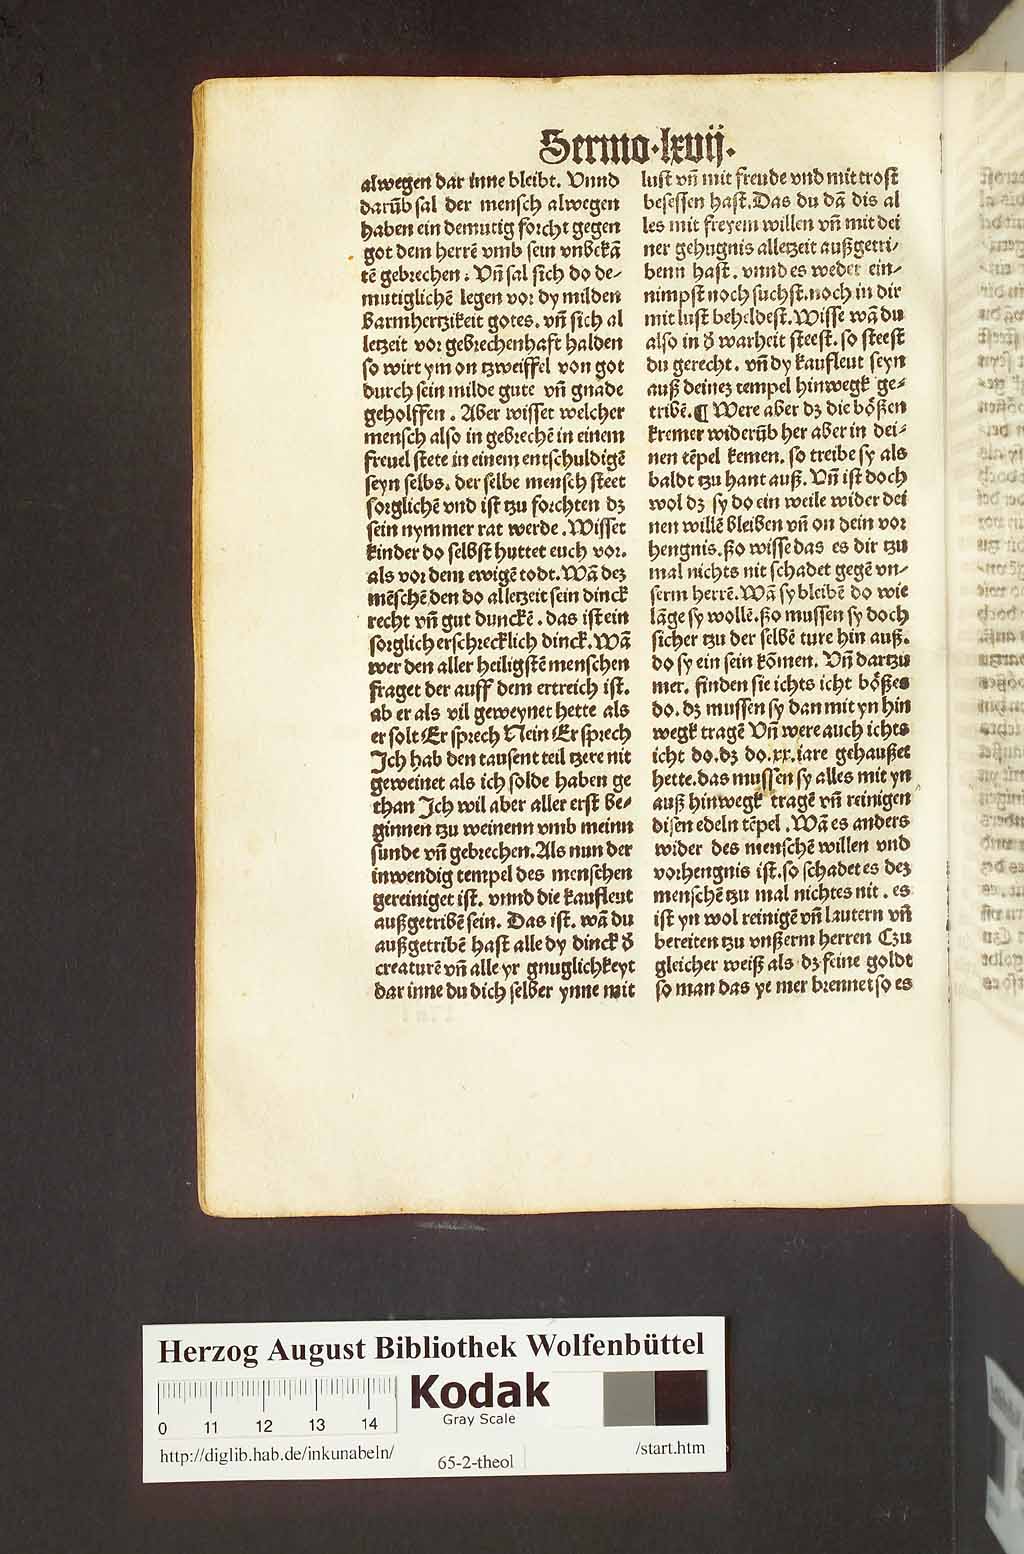 Sermo·lxvij.
alwegen dar inne bleibt. Vnnd
darūb sal der mensch alwegen
haben ein demutig forcht gegen
got dem herrē vmb sein vnbekā
tē gebrechen. Vn̄ sal sich do de-
mutiglichē legen vor dy milden
Barmhertzikeit gotes. vn̄ sich al
letzeit vor gebrechenhaft halden
so wirt ym on tzweiffel von got
durch sein milde gute vn̄ gnade
geholffen. Aber wisset welcher
mensch also in gebrechē in einem
freuel stete in einem entschuldigē
seyn selbs. der selbe mensch steet
sorglichē vnd ist tzu forchten dz
sein nymmer rat werde. Wisset
kinder do selbst huttet euch vor.
als vor dem ewigē todt. Wā dez
mēschē den do alletzeit sein dinck
recht vn̄ gut dunckē. das ist ein
sorglich erschrecklich dinck. Wā
wer den aller heiligstē menschen
fraget der auff dem ertreich ist.
ab er als vil geweynet hette als
er solt Er sprech Nein Er sprech
Ich hab den tausent teil tzere nit
geweinet als ich solde haben ge
than Ich wil aber aller erst be-
ginnen tzu weinenn vmb meinn
sunde vn̄ gebrechen. Als nun der
inwendig tempel des menschen
gereiniget ist. vnnd die kaufleut
außgetribē sein. Das ist. wā du
außgetribē hast alle dy dinck d̕
creaturē vn̄ alle yr gnuglichkeyt
dar inne du dich selber ynne mit
lust vn̄ mit freude vnd mit trost
besessen hast. Das du dā dis al
les mit freyem willen vn̄ mit dei
ner gehugnis alletzeit außgetri-
benn hast. vnnd es weder ein-
nimpst noch suchst. noch in dir
mit lust beheldest. Wisse wā du
also in d̕ warheit steest. so steest
du gerecht. vn̄ dy kaufleut seyn
auß deinez tempel hinwegk ge-
tribē. ¶ Were aber dz die bößen
kremer widerūb her aber in dei-
nen tēpel kemen. so treibe sy als
baldt tzu hant auß. Vn̄ ist doch
wol dz sy do ein weile wider dei
nen willē bleiben vn̄ on dein vor
hengnis. ßo wisse das es dir tzu
mal nichts nit schadet gegē vn-
serm herrē. Wā sy bleibē do wie
lāge sy wollē. ßo mussen sy doch
sicher tzu der selbē ture hin auß.
do sy ein sein kōmen. Vn̄ dartzu
mer. finden sie ichts icht bößes
do. dz mussen sy dan mit yn hin
wegk tragē Vn̄ were auch ichts
icht do. dz do. xx. iare gehaußet
hette. das mussen sy alles mit yn
auß hinwegk tragē vn̄ reinigen
disen edeln tēpel. Wā es anders
wider des menschē willen vnd
vorhengnis ist. so schadet es dez
menschē tzu mal nichtes nit. es
ist yn wol reinigē vn̄ lautern vn̄
bereiten tzu vnßerm herren Czu
gleicher weiß als dz feine goldt
so man das ye mer brennet so es
Herzog August Bibliothek Wolfenbüttel
Kodak
Gray Scale
0 11 12 13 14
http://diglib.hab.de/inkunabeln/ 65-2-theol /start.htm